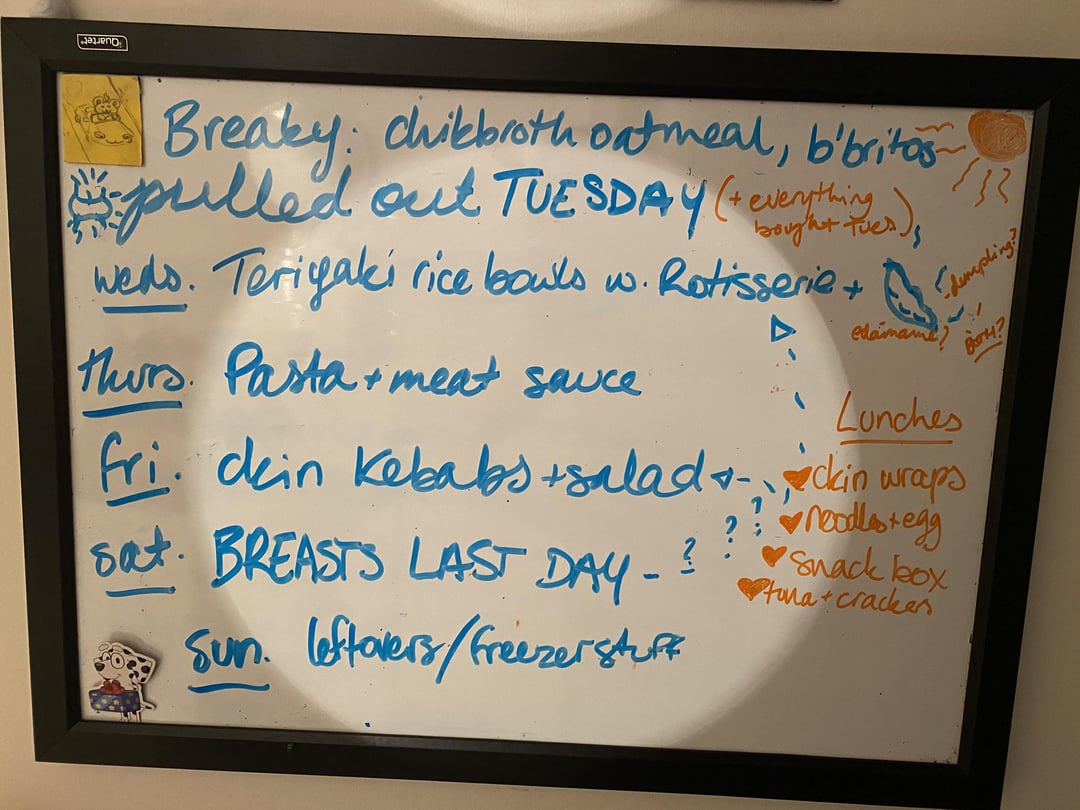 Quartet
Breaky: chikbroth oatmeal, b'britos
pulled out TUESDAY (+ everything
bought Tues)
weds. Teriyaki rice bowls w. Rotisserie +
edamame?
dumpling?
BOTH?
thurs. Pasta + meat sauce
fri. ckin Kebabs + salad
sat. BREASTS LAST DAY - ? ? ?
sun. leftovers/freezer stuff
Lunches
ckin wraps
noodles + egg
snack box
tuna + crackers